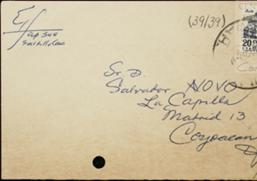 (39/39)
20
Ap. 308
Saltillo, Coah
Sr. D.
Salvador NOVO
La Capilla
Madrid 13
Coyoacan